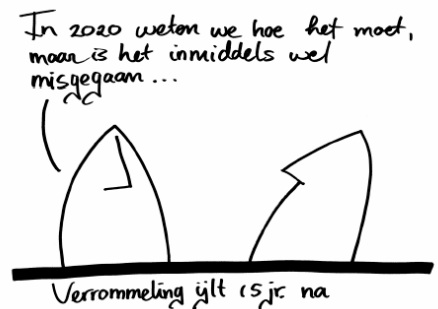 In 2020 weten we hoe het moet,
maar is het inmiddels wel
misgegaan...
Verrommeling ijlt 15 jr. na